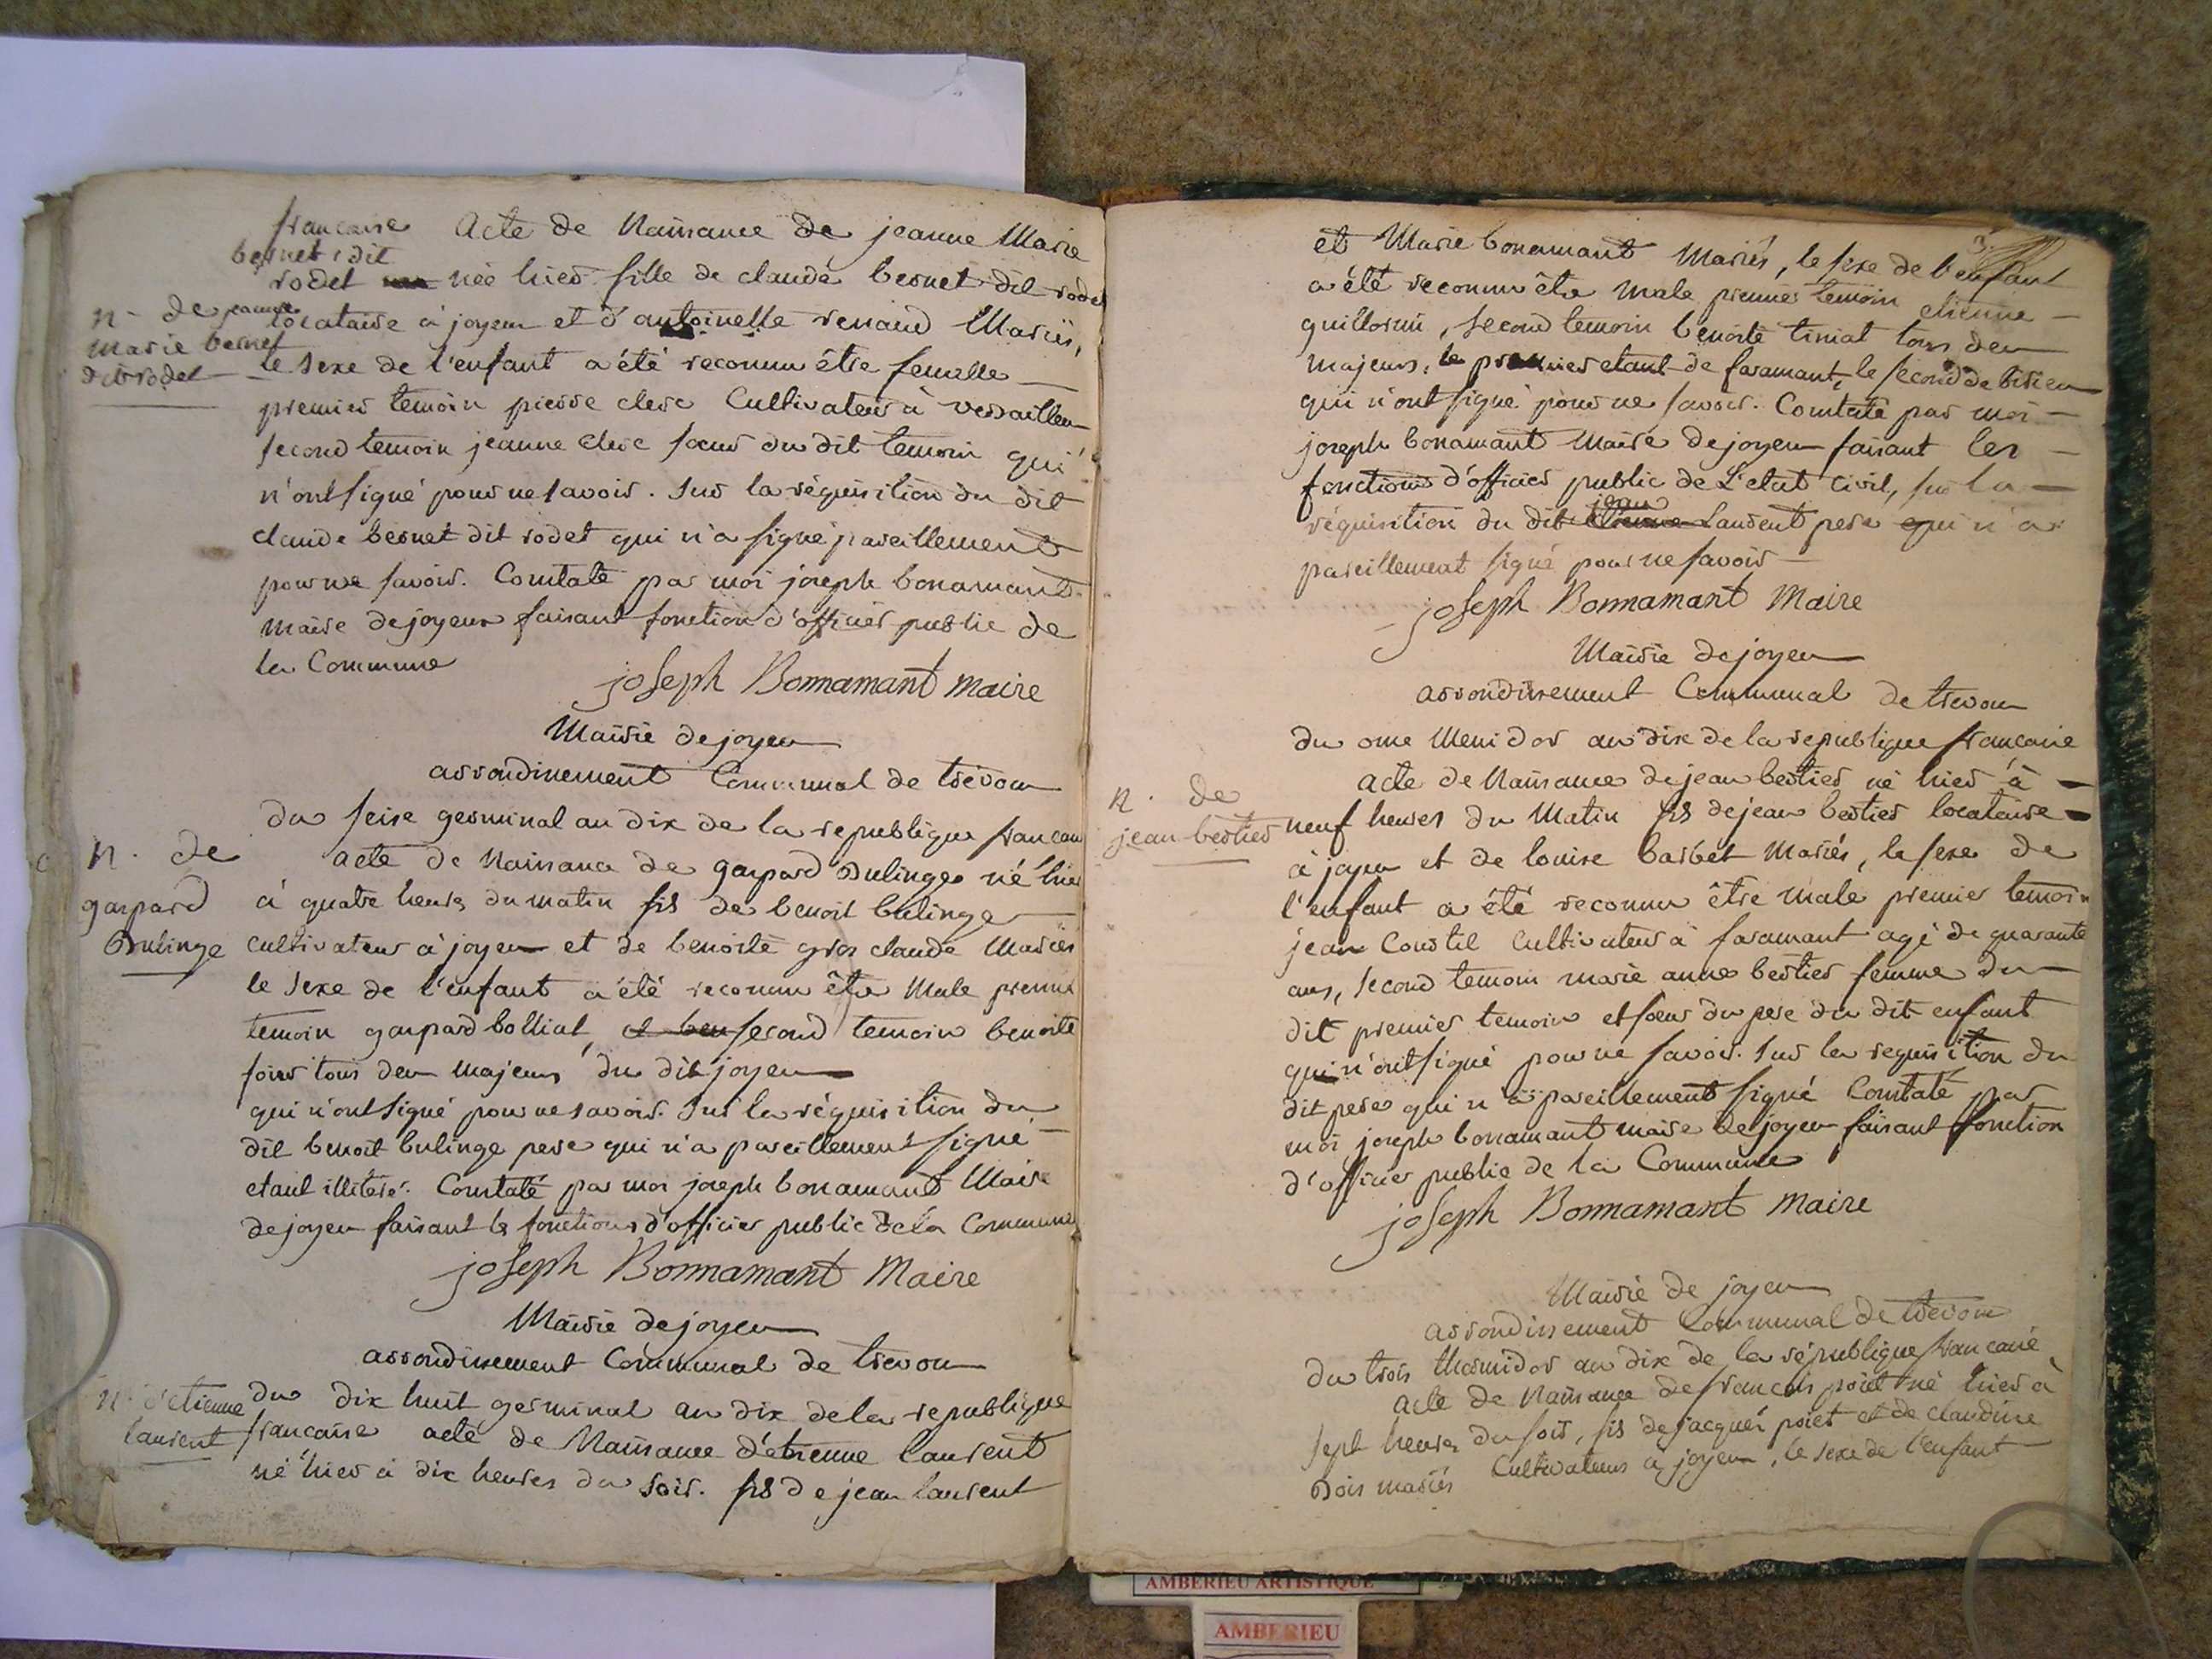 francaise Acte de Naissance de jeanne Marie
bernet dit
rodet née hier fille de claude bernet dit rodet
n. de jeanne
marie bernet
dit rodet
locataire à joyeux et d'antoinette renaud Mariés,
le sexe de l'enfant a été reconnu être femelle
premier temoin pierre clerc Cultivateur à versailleux
second temoin jeanne clerc sœur du dit temoin qui
n'ont signé pour ne savoir. Sur la réquisition du dit
claude bernet dit rodet qui n'a signé pareillement
pour ne savoir. Constaté par moi joseph bonamant
maire de joyeux faisant fonction d'officier public de
la Commune
joseph Bonnamant maire
Mairie de joyeux
arrondissement Communal de trévoux
du seize germinal an dix de la republique francaise
n. de
gaspard
Bulinge
acte de Naissance de gaspard Bulinge né hier
à quatre heures du matin fils de benoit bulinge
cultivateur à joyeux et de benoite gros claude Mariés
le sexe de l'enfant a été reconnu être Male premier
temoin gaspard bolliat, et ben second temoin benoite
tous deux Majeurs du dit joyeux
qui n'ont signé pour ne savoir. Sur la réquisition du
dit benoit bulinge pere qui n'a pareillement signé
etant illiteré. Constaté par moi joseph bonamant Maire
de joyeux faisant les fonctions d'officier public de la Commune
joseph Bonnamant Maire
Mairie de joyeux
arrondissement Communal de trevoux
n. d'etienne
laurent
du dix huit germinal an dix de la republique
francaise acte de Naissance d'etienne laurent
né hier à dix heures du soir. fils de jean laurent
3.
et Marie bonamant Mariés, le sexe de l'enfant
a été reconnu être Male premier temoin etienne
guillormi, second temoin benoite tiniat tous deux
majeurs, le premier etant de faramant, le second de birieux
qui n'ont signé pour ne savoir. Constaté par moi
joseph bonamant Maire de joyeux faisant les
fonctions d'officier public de L'etat civil, sur la
jean
réquisition du dit etienne Laurent pere qui n'a
pareillement signé pour ne savoir
joseph Bonnamant Maire
Mairie de joyeux
arrondissement Communal de trevoux
du onze Messidor an dix de la republique francaise
n. de
jean bertier
acte de Naissance de jean bertier né hier à
neuf heures du Matin fils de jean bertier locataire
à joyeux et de louise barbet Mariés, le sexe de
l'enfant a été reconnu être Male premier temoin
jean Coustil Cultivateur à faramant agé de quarante
ans, second temoin marie anne bertier femme du
dit premier temoin et sœur du pere du dit enfant
qui n'ont signé pour ne savoir. Sur la requisition du
dit pere qui n'a pareillement signé Constaté par
moi joseph bonamant maire de joyeux faisant fonction
d'officier public de la Commune
joseph Bonnamant Maire
Mairie de joyeux
arrondissement Communal de trevoux
du trois thermidor an dix de la république francaise
acte de Naissance de francois poiet né hier à
sept heures du soir, fils de jacques poiet et de claudine
Bois mariés Cultivateurs à joyeux, le sexe de l'enfant
AMBERIEU ARTISTIQUE
AMBERIEU